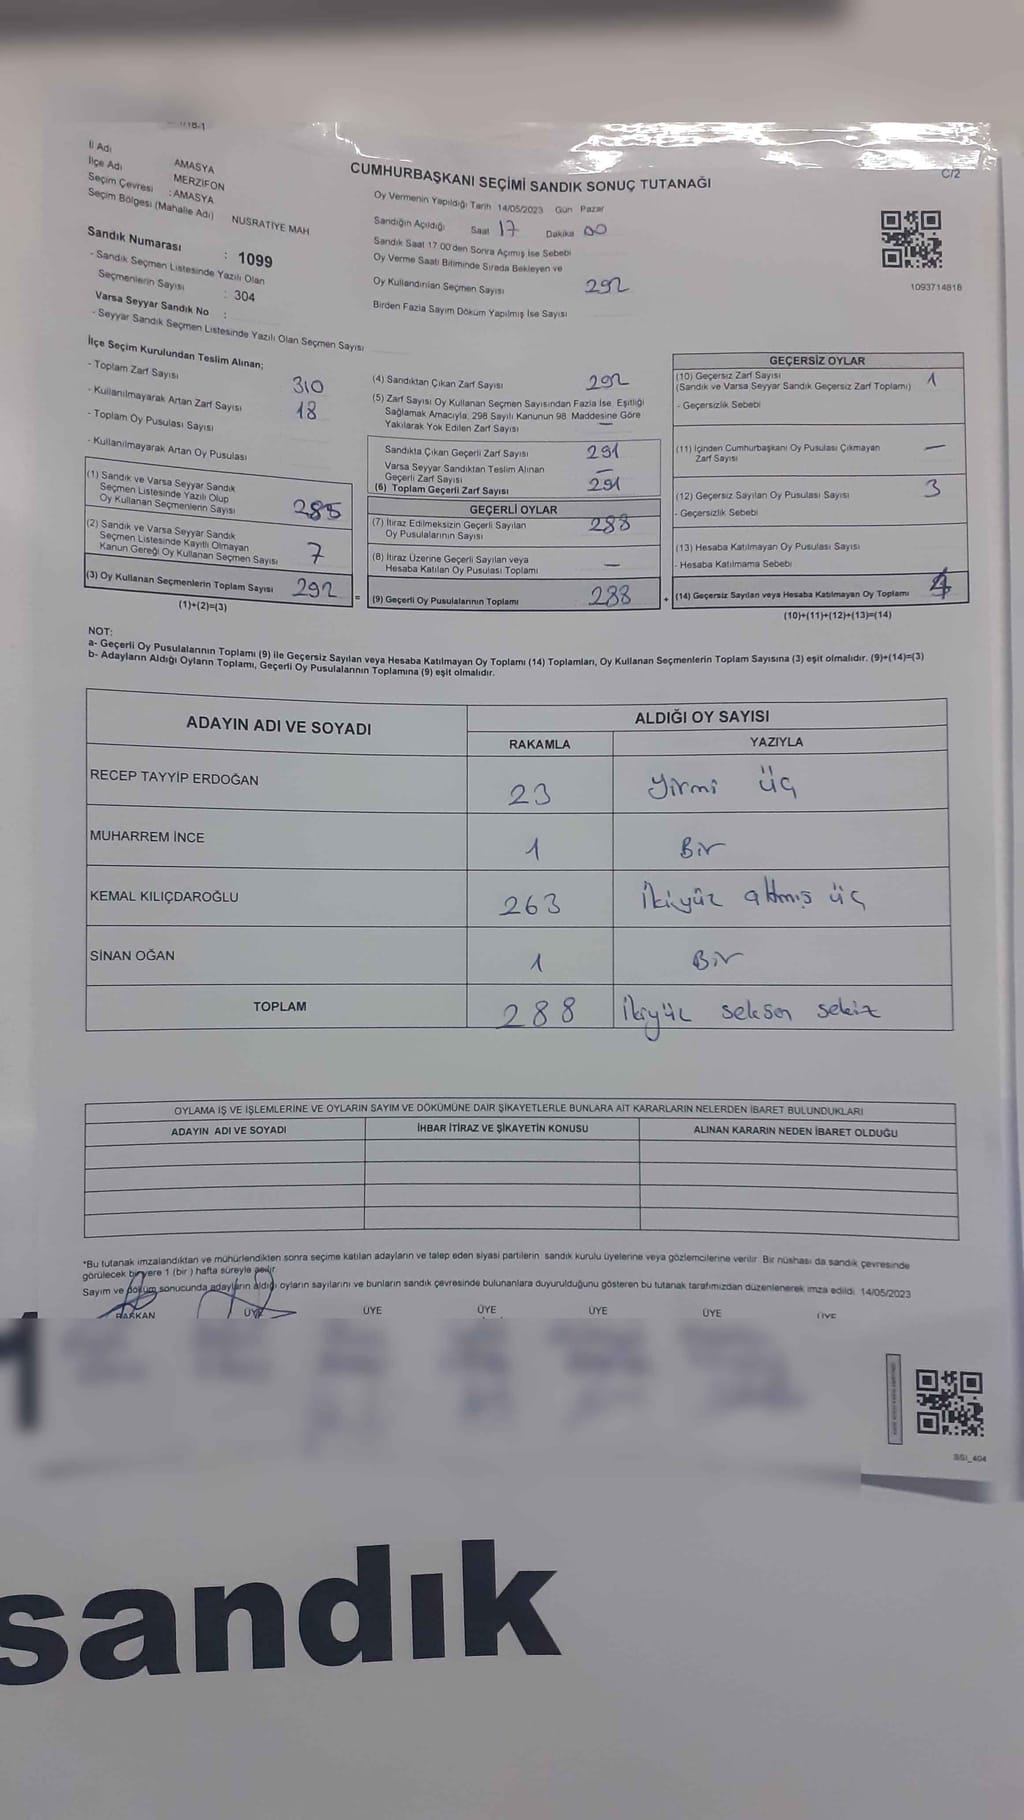 C/2
İl Adı
İlçe Adı AMASYA
Seçim Çevresi MERZİFON
Seçim Bölgesi (Mahalle Adı) : AMASYA
NUSRATİYE MAH
CUMHURBAŞKANI SEÇİMİ SANDIK SONUÇ TUTANAĞI
Oy Vermenin Yapıldığı Tarih 14/05/2023 Gün Pazar
Sandığın Açıldığı Saat 17 Dakika 00
Sandık Saat 17.00'den Sonra Açımış İse Sebebi
Oy Verme Saati Bitiminde Sırada Bekleyen ve
Oy Kullandırılan Seçmen Sayısı 292
Birden Fazla Sayım Döküm Yapılmış İse Sayısı
1093714818
Sandık Numarası : 1099
- Sandık Seçmen Listesinde Yazılı Olan
Seçmenlerin Sayısı : 304
Varsa Seyyar Sandık No :
- Seyyar Sandık Seçmen Listesinde Yazılı Olan Seçmen Sayısı
İlçe Seçim Kurulundan Teslim Alınan;
- Toplam Zarf Sayısı 310
- Kullanılmayarak Artan Zarf Sayısı 18
- Toplam Oy Pusulası Sayısı
- Kullanılmayarak Artan Oy Pusulası
(1) Sandık ve Varsa Seyyar Sandık
Seçmen Listesinde Yazılı Olup
Oy Kullanan Seçmenlerin Sayısı 285
(2) Sandık ve Varsa Seyyar Sandık
Seçmen Listesinde Kayıtlı Olmayan
Kanun Gereği Oy Kullanan Seçmen Sayısı 7
(3) Oy Kullanan Seçmenlerin Toplam Sayısı 292
(1)+(2)=(3)
(4) Sandıktan Çıkan Zarf Sayısı 292
(5) Zarf Sayısı Oy Kullanan Seçmen Sayısından Fazla İse, Eşitliği
Sağlamak Amacıyla, 298 Sayılı Kanunun 98. Maddesine Göre
Yakılarak Yok Edilen Zarf Sayısı —
Sandıkta Çıkan Geçerli Zarf Sayısı 291
Varsa Seyyar Sandıktan Teslim Alınan
Geçerli Zarf Sayısı —
(6) Toplam Geçerli Zarf Sayısı 291
GEÇERLİ OYLAR
(7) İtiraz Edilmeksizin Geçerli Sayılan
Oy Pusulalarının Sayısı 288
(8) İtiraz Üzerine Geçerli Sayılan veya
Hesaba Katılan Oy Pusulası Toplamı —
= (9) Geçerli Oy Pusulalarının Toplamı 288
GEÇERSİZ OYLAR
(10) Geçersiz Zarf Sayısı 1
(Sandık ve Varsa Seyyar Sandık Geçersiz Zarf Toplamı)
- Geçersizlik Sebebi
(11) İçinden Cumhurbaşkanı Oy Pusulası Çıkmayan —
Zarf Sayısı
(12) Geçersiz Sayılan Oy Pusulası Sayısı 3
- Geçersizlik Sebebi
(13) Hesaba Katılmayan Oy Pusulası Sayısı
- Hesaba Katılmama Sebebi
+ (14) Geçersiz Sayılan veya Hesaba Katılmayan Oy Toplamı 4
(10)+(11)+(12)+(13)=(14)
NOT:
a- Geçerli Oy Pusulalarının Toplamı (9) ile Geçersiz Sayılan veya Hesaba Katılmayan Oy Toplamı (14) Toplamları, Oy Kullanan Seçmenlerin Toplam Sayısına (3) eşit olmalıdır. (9)+(14)=(3)
b- Adayların Aldığı Oyların Toplamı, Geçerli Oy Pusulalarının Toplamına (9) eşit olmalıdır.
ADAYIN ADI VE SOYADI ALDIĞI OY SAYISI
RAKAMLA YAZIYLA
RECEP TAYYİP ERDOĞAN 23 Yirmi üç
MUHARREM İNCE 1 Bir
KEMAL KILIÇDAROĞLU 263 İkiyüz altmış üç
SİNAN OĞAN 1 Bir
TOPLAM 288 İkiyüz seksen sekiz
OYLAMA İŞ VE İŞLEMLERİNE VE OYLARIN SAYIM VE DÖKÜMÜNE DAİR ŞİKAYETLERLE BUNLARA AİT KARARLARIN NELERDEN İBARET BULUNDUKLARI
ADAYIN ADI VE SOYADI İHBAR İTİRAZ VE ŞİKAYETİN KONUSU ALINAN KARARIN NEDEN İBARET OLDUĞU
*Bu tutanak imzalandıktan ve mühürlendikten sonra seçime katılan adayların ve talep eden siyasi partilerin sandık kurulu üyelerine veya gözlemcilerine verilir. Bir nüshası da sandık çevresinde
görülecek bir yere 1 (bir) hafta süreyle asılır.
Sayım ve döküm sonucunda adayların aldığı oyların sayılarını ve bunların sandık çevresinde bulunanlara duyurulduğunu gösteren bu tutanak tarafımızdan düzenlenerek imza edildi. 14/05/2023
BAŞKAN ÜYE ÜYE ÜYE ÜYE ÜYE ÜYE
SSI_404
sandık